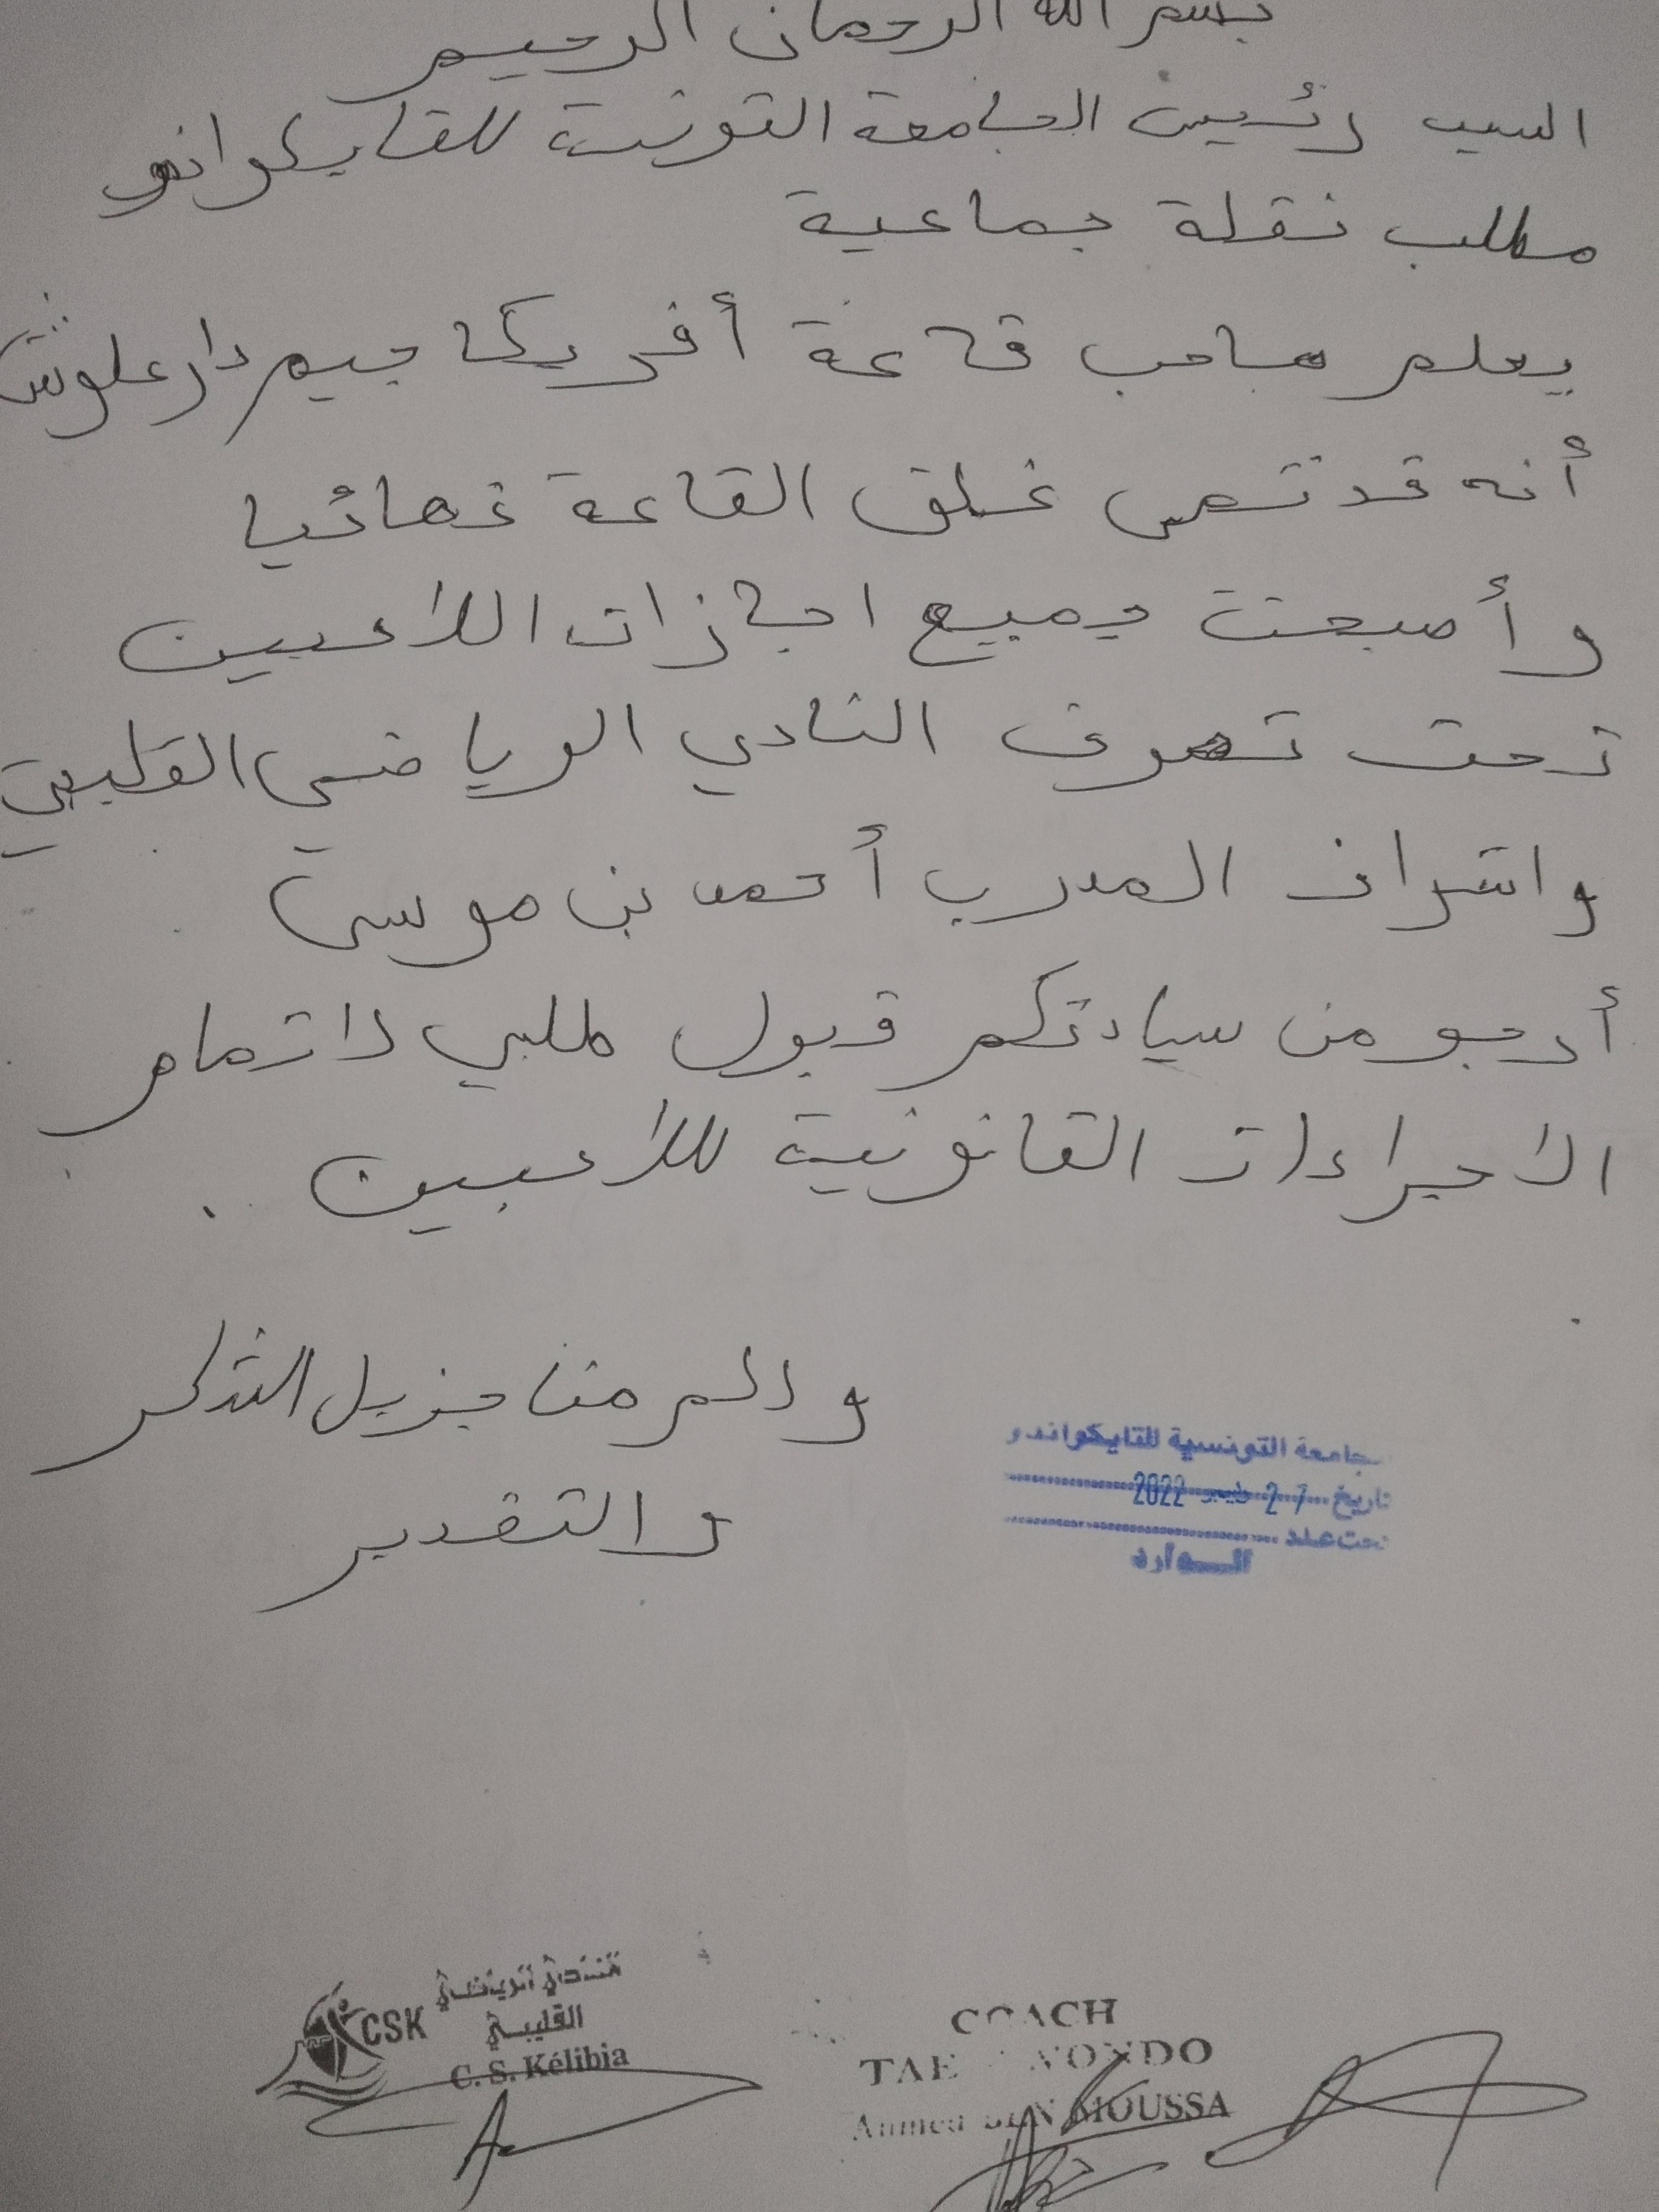 بسم الله الرحمان الرحيم
السيد رئيس الجامعة التونسية للتايكوانو
مطلب نقلة جماعية
يعلم صاحب قاعة أفريكا جيم دار علوش
أنه قد تم غلق القاعة نهائيا
وأصبحت جميع اجازات اللاعبين
تحت تصرف النادي الرياضي القليبي
واشراف المدرب أحمد بن موسى
أرجو من سيادتكم قبول طلبي لاتمام
الاجراءات القانونية للاعبين .
ولكم منا جزيل الشكر
والتقدير
جامعة التونسية للتايكواندو
تاريخ 27 2022
تحت عدد
الــوارد
CSK
الرياضي
القليبي
C. S. Kélibia
COACH
TAE WONDO
Ahmed BEN MOUSSA